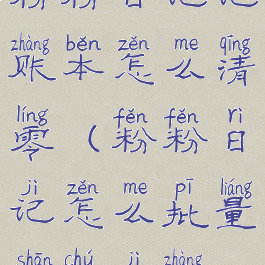 zhàng běn zěn me qīng
账本怎么清
líng fěn fěn rì
零（粉粉日
jì zěn me pī liáng
记怎么批量
shān chú jì zhàng